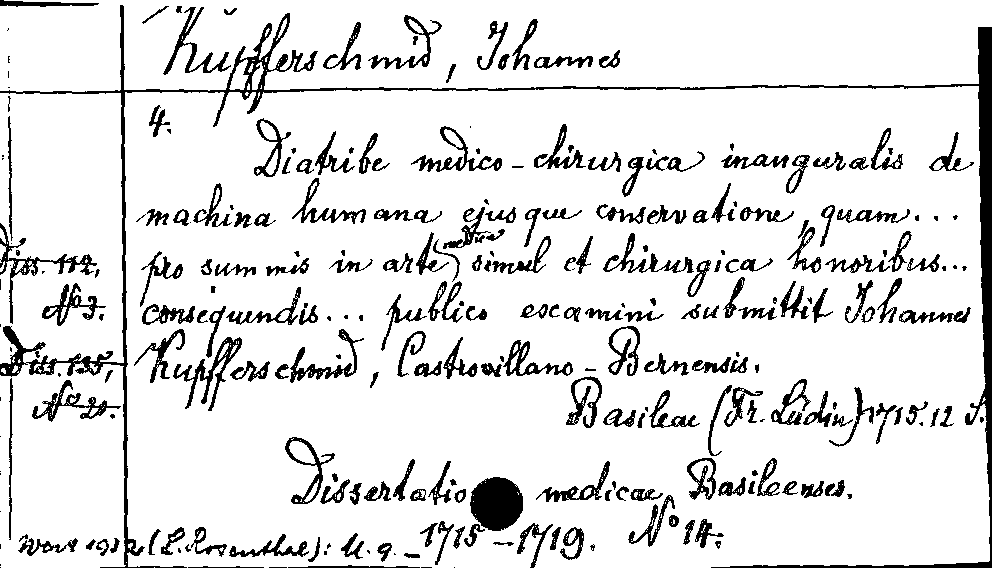 Kupfferschmid, Johannes
4.
Diatribe medico-chirurgica inauguralis de
machina humana ejusque conservatione, quam...
pro summis in arte (medica) simul et chirurgica honoribus...
consequendis... publico examini submittit Johannes
Kupfferschmid, Castrovillano-Bernensis.
Basileae (Fr. Lüdin) 1715. 12 S.
Diss. 112,
No 3.
Diss. 135,
No 20.
Dissertatio medicae Basileenses.
1715-1719. No 14.
(L. Rosenthal): M. 9.-